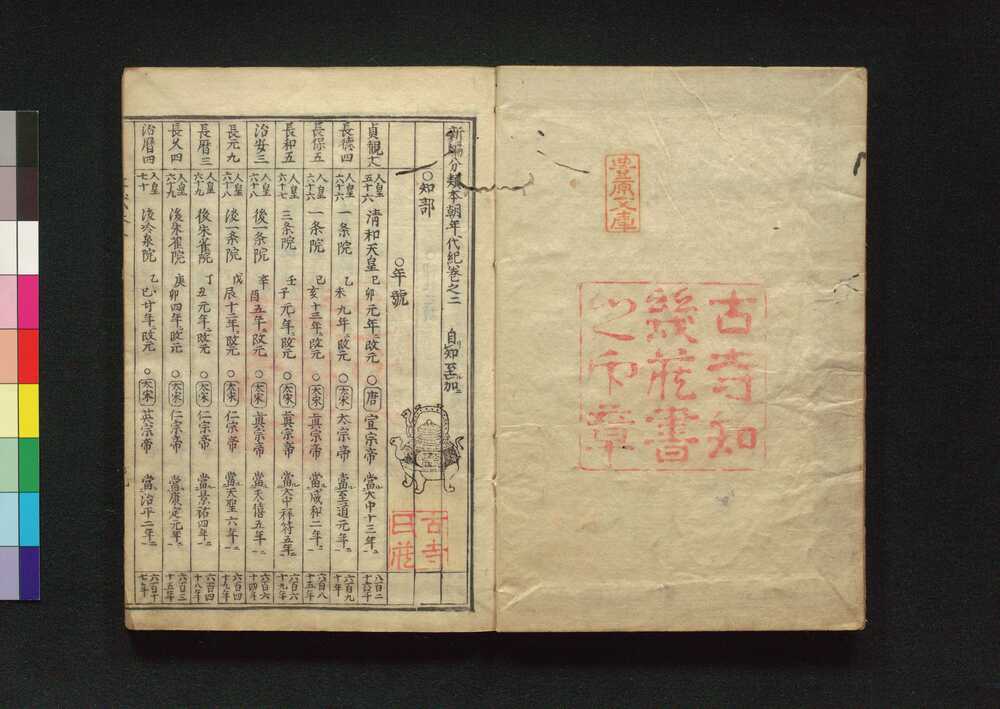 豊原文庫
古寺知
幾蔵書
之印章
新編分類本朝年代紀巻之二 自知至加
○年號
○知部
貞觀十八 人皇五十六 清和天皇 己卯元年改元 ○唐 宣宗帝 當大中十三年
長徳四 人皇六十六 一条院 乙未九年改元 ○太宋 太宗帝 當至道元年 六百九十年
長保五 人皇六十六 一条院 己亥十三年改元 ○太宋 真宗帝 當咸和二年 六百八十五年
長和五 人皇六十七 三条院 壬子元年改元 ○太宋 真宗帝 當大中祥符五年 六百六十九年
治安三 人皇六十八 後一条院 辛酉五年改元 ○太宋 真宗帝 當天僖五年 六百六十四年
長元九 人皇六十八 後一条院 戊辰十二年改元 ○太宋 仁宗帝 當天聖六年 六百四十九年
長暦三 人皇六十九 後朱雀院 丁丑元年改元 ○太宋 仁宗帝 當景祐四年 六百四十八年
長久四 人皇六十九 後朱雀院 庚卯四年改元 ○太宋 仁宗帝 當康定元年 六百三十五年
治暦四 人皇七十 後冷泉院 乙巳廿年改元 ○太宋 英宗帝 當治平二年 六百十七年